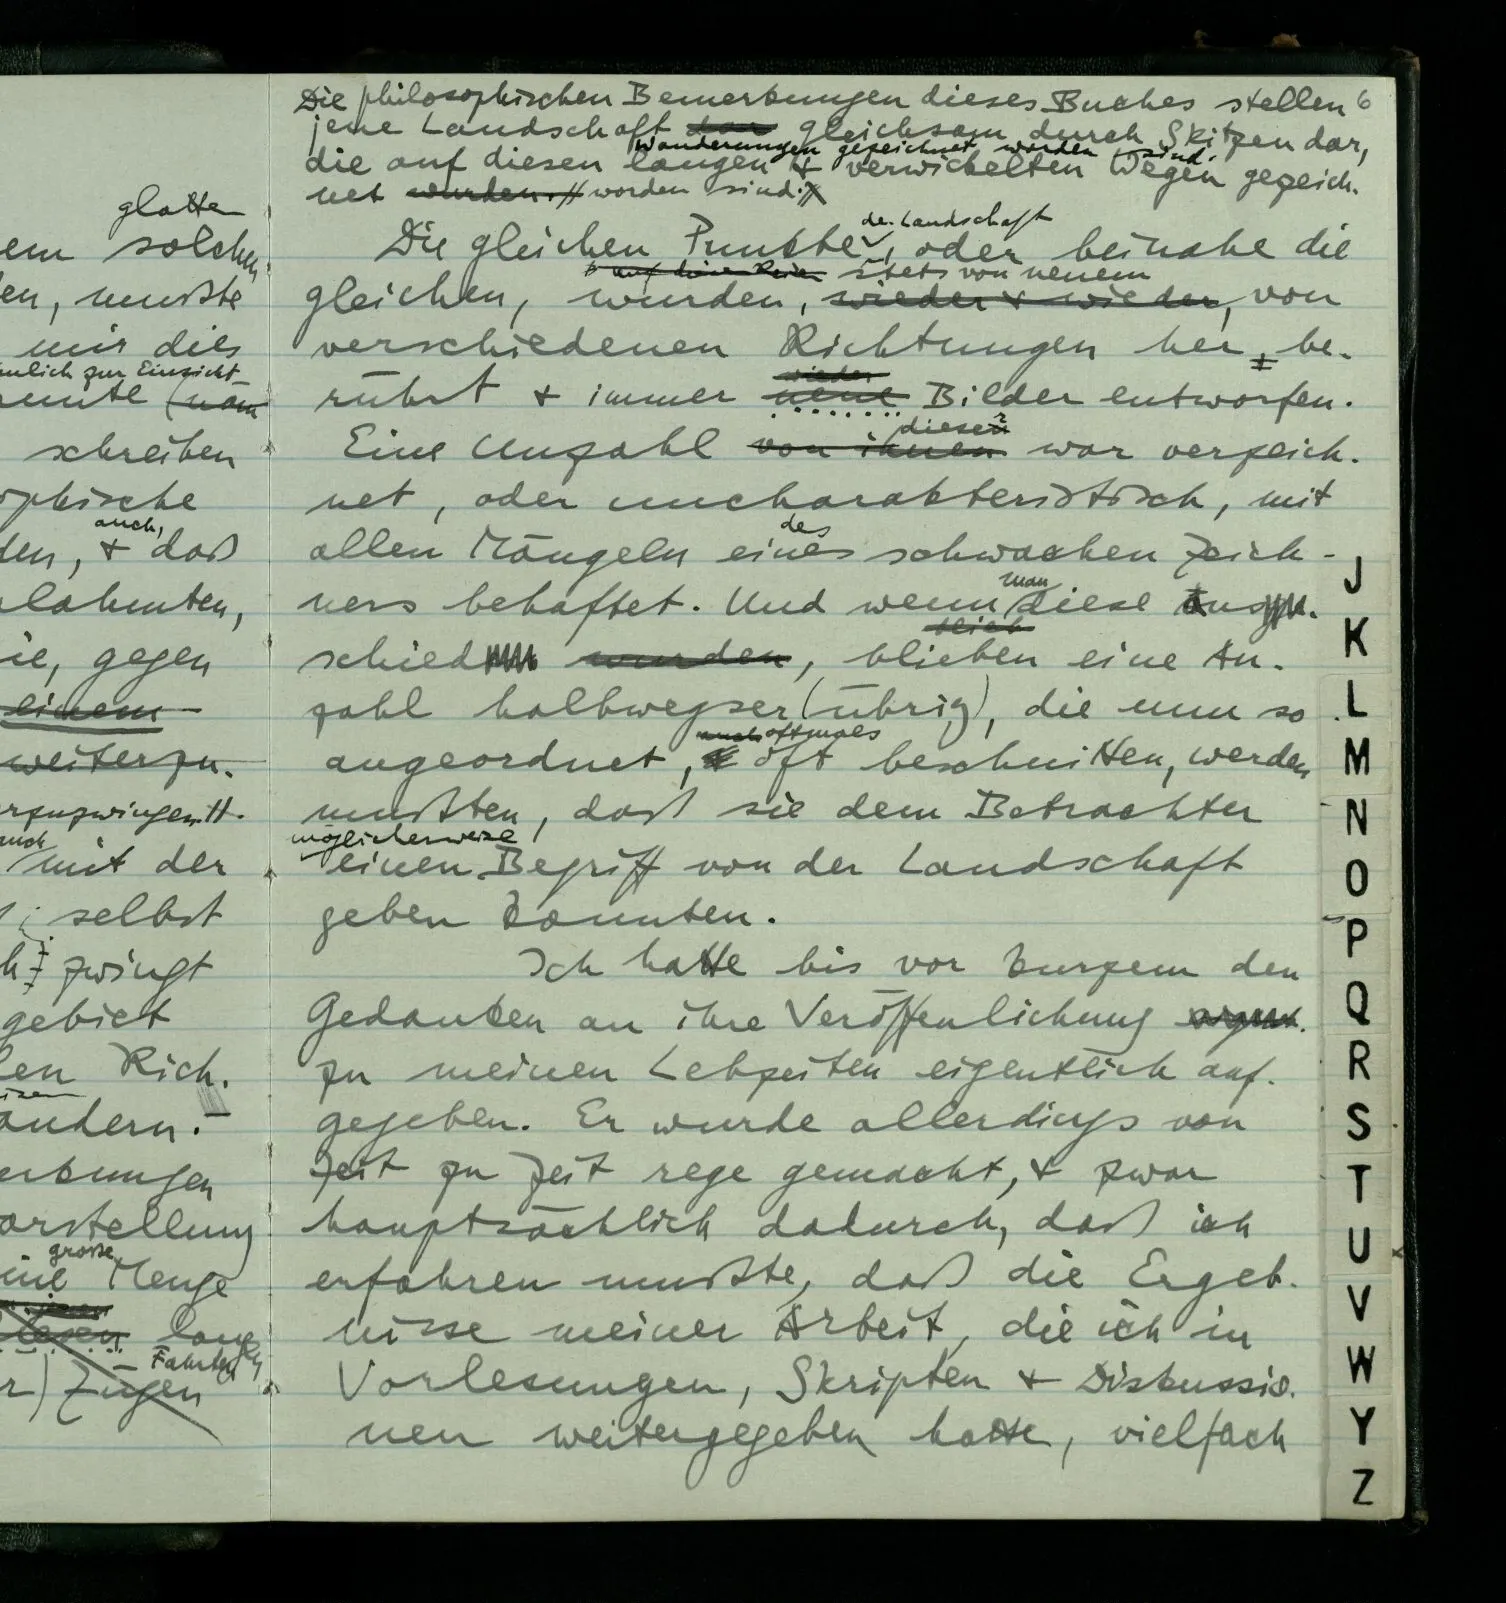 glatte
em solchen
en, mußte
mir dies
nämlich zur Einsicht
(näm
schreiben
ophische
auch,
den, & daß
lahmten,
ie, gegen
einem
weiterzu-
erzuzwingen //.
auch
mit der
selbst
zwingt
gebiet
len Rich-
ändern. –
erkungen
arstellung
große
eine Menge
langen
Fahrten
r) Zügen
Die philosophischen Bemerkungen dieses Buches stellen 6
jene Landschaft dar gleichsam durch Skitzen dar,
Wanderungen gezeichnet worden sind.
die auf diesen langen & verwickelten Wegen gezeich-
net wurden. // worden sind. //
der Landschaft
Die gleichen Punkte, oder beinahe die
auf diesen Reisen stets von neuem
gleichen, wurden, wieder & wieder, von
verschiedenen Richtungen her, be-
rührt & immer neue Bilder entworfen.
wieder
dieser
Eine Unzahl von ihnen war verzeich-
net, oder uncharakteristisch, mit
des
allen Mängeln eines schwachen Zeich-
man
ners behaftet. Und wenn diese aus
blieb
schied wurden, blieben eine An-
zahl halbwegser (übrig), die nun so
auch oftmals
angeordnet, & oft beschnitten, werden
mußten, daß sie dem Betrachter
möglicherweise
einen Begriff von der Landschaft
geben konnten.
Ich hatte bis vor kurzem den
Gedanken an ihre Veröffentlichung
zu meinen Lebzeiten eigentlich auf-
gegeben. Er wurde allerdings von
Zeit zu Zeit rege gemacht, & zwar
hauptsächlich dadurch, daß ich
erfahren mußte, daß die Ergeb-
nisse meiner Arbeit, die ich in
Vorlesungen, Skripten & Diskussio-
nen weitergegeben hatte, vielfach
J
K
L
M
N
O
P
Q
R
S
T
U
V
W
Y
Z